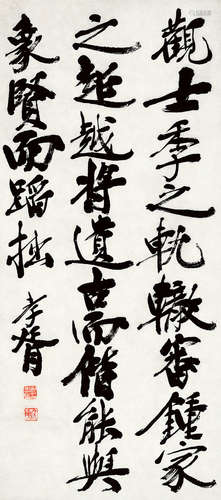 觀士季之軌轍審鍾家
之超越將遺古而偕能與
象賢而蹈拙 孝胥